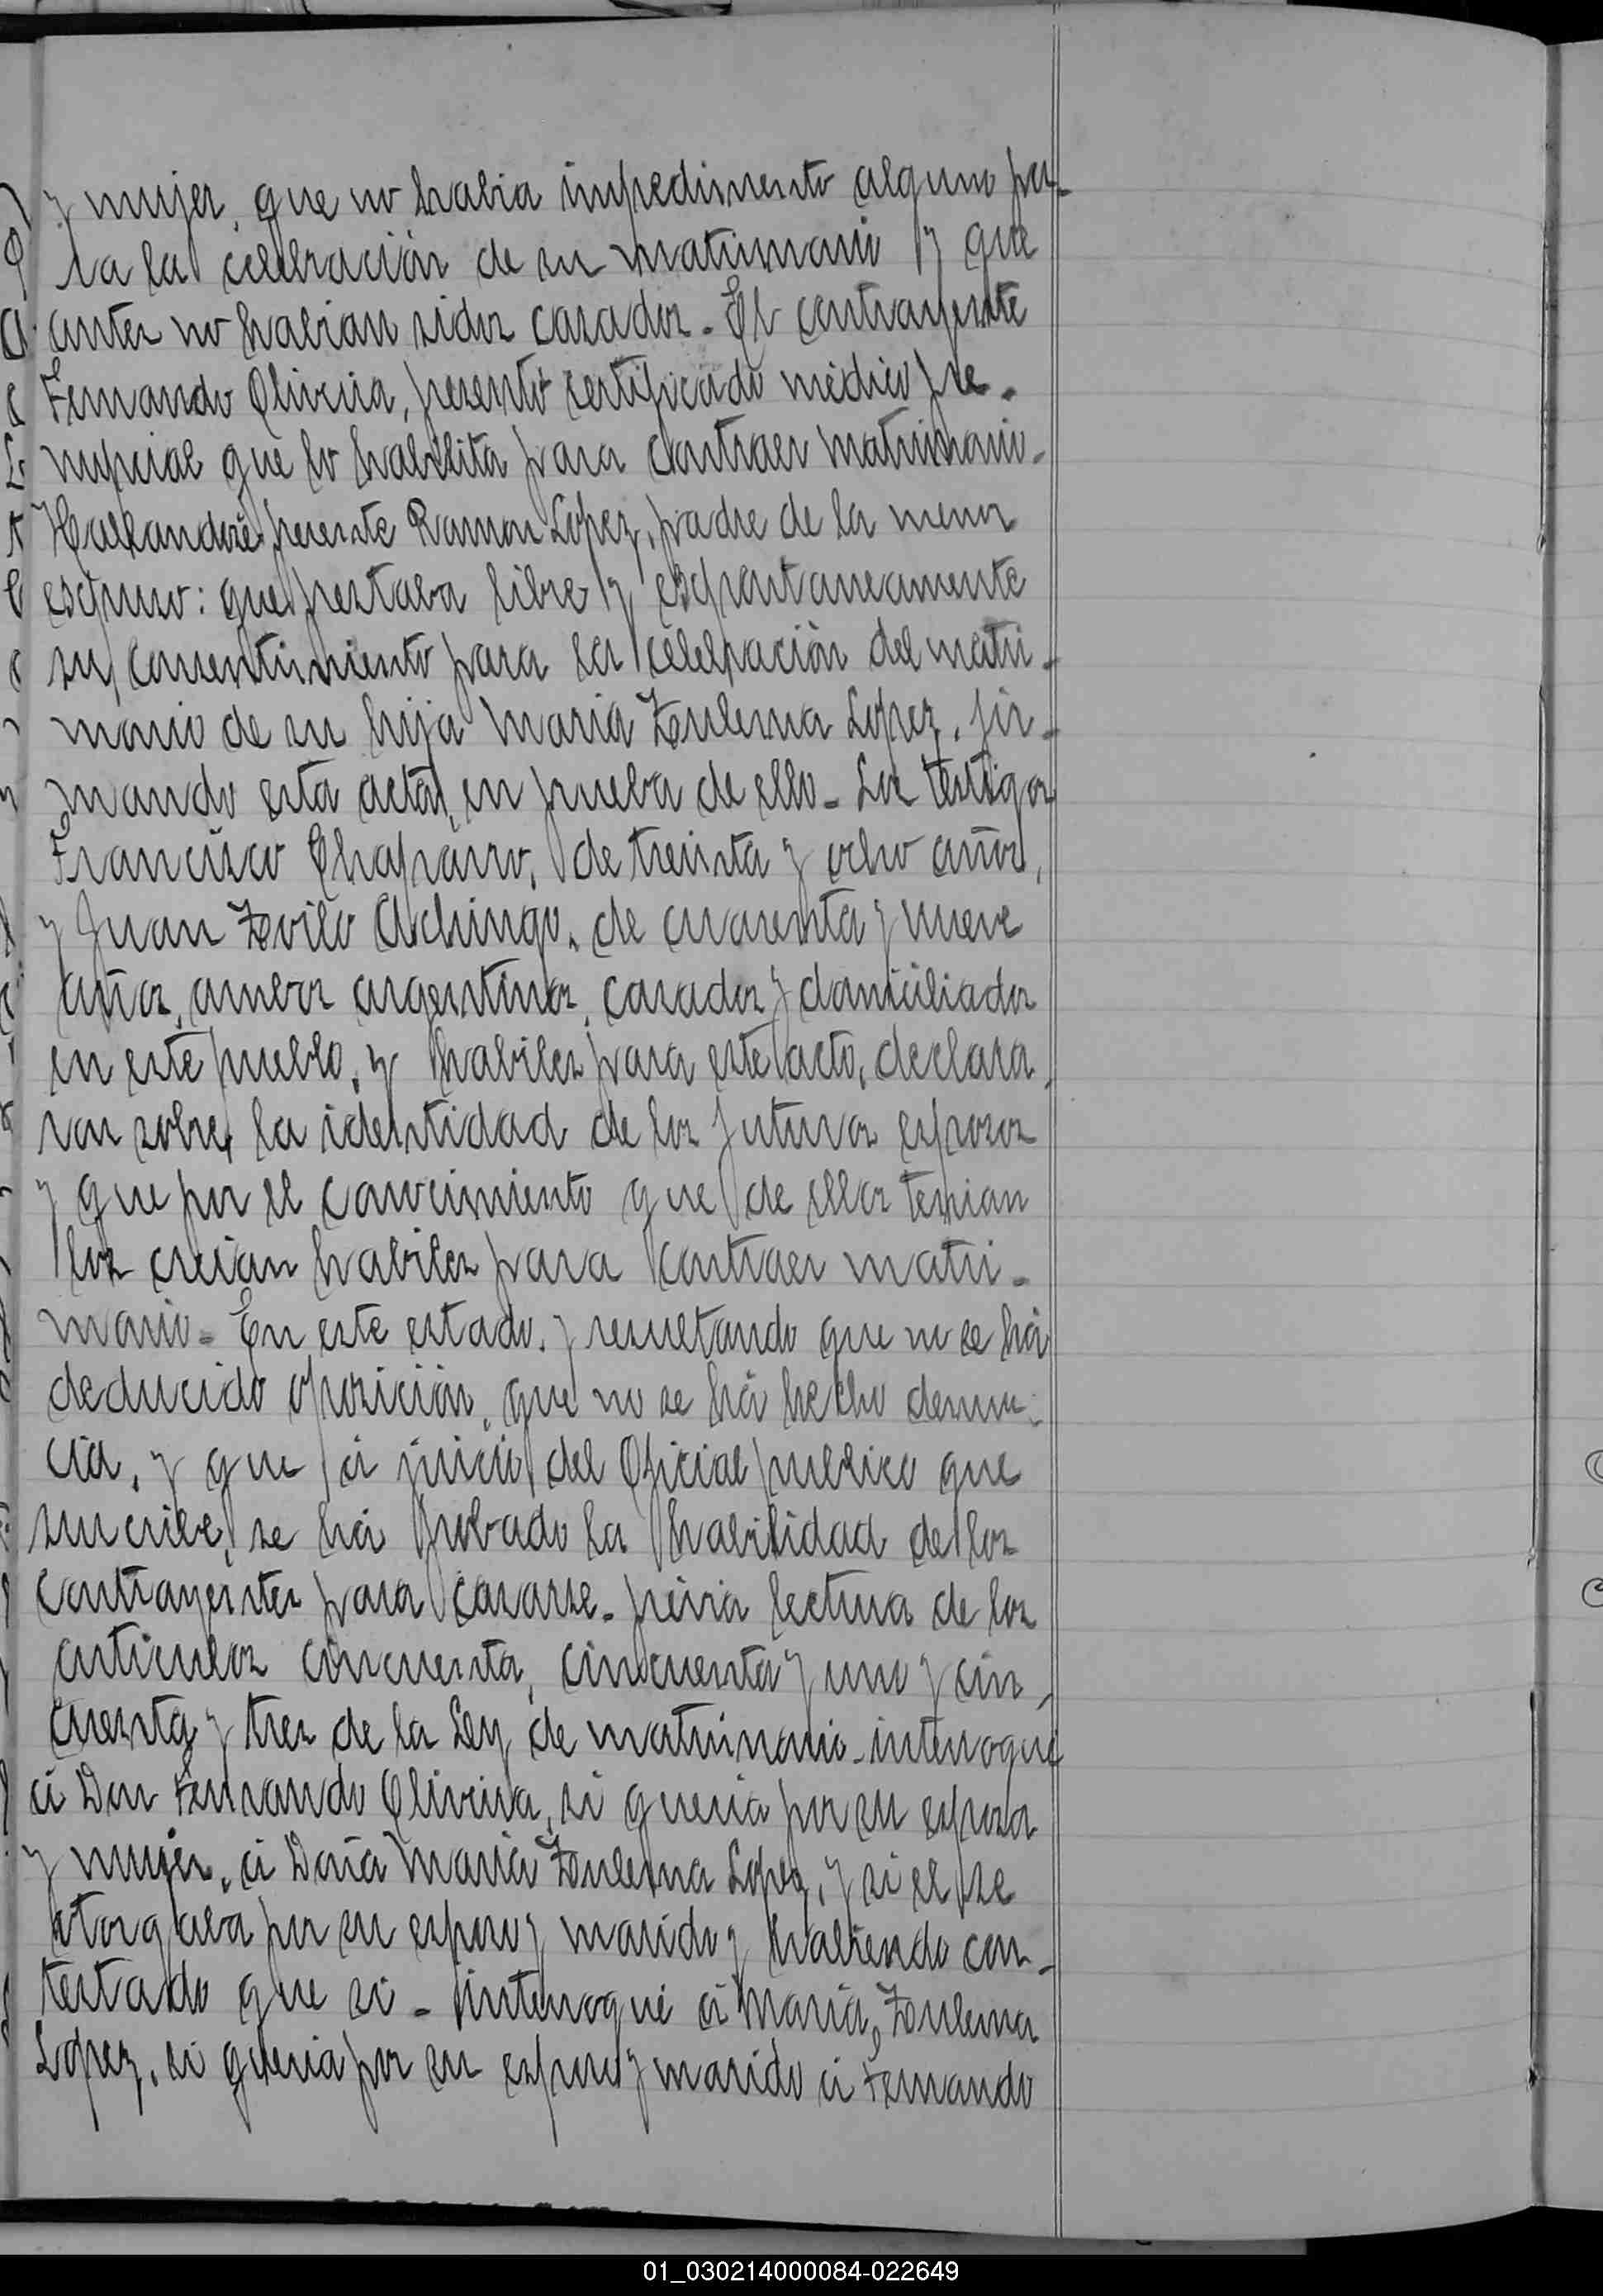 y mujer, que no habia impedimento alguno pa-
ra la celebración de su matrimonio y que
antes no habian sidos casados - El contrayente
Fernando Oliveira, presentó certificado médico pre-
nupcial que lo habilita para contraer matrimonio -
Hallandose presente Ramon Lopez, padre de la menor
expuso: que prestaba libre y espontaneamente
su consentimiento para la celebración del matri-
monio de su hija Maria Zoulema Lopez, fir-
mando esta acta, en prueba de ello - Los testigos
Francisco Chaparro, de treinta y ocho años,
y Juan Zoilo Achingo, de cuarenta y nueve
años, ambos argentinos, casados y domiciliados
en este pueblo, y habiles para este acto, declara-
ron sobre la identidad de los futuros esposos
y que por el conocimiento que de ellos tenian
los creian habiles para contraer matri-
monio - En este estado, y resultando que no se há
deducido oposición, que no se há hecho denun-
cia, y que á juicio del Oficial publico que
suscribe, se há probado la habilidad de los
contrayentes para casarse - previa lectura de los
articulos cincuenta, cincuenta y uno y cin-
cuenta y tres de la Ley de matrimonio - interrogué
á Don Fernando Oliveira, si queria por su esposa
y mujer, á Doña Maria Zoulema Lopez, y si el se
otorgaba por su esposo y marido y habiendo con-
testado que si - interrogué á Maria Zoulema
Lopez, si queria por su esposo y marido á Fernando
01_030214000084-022649